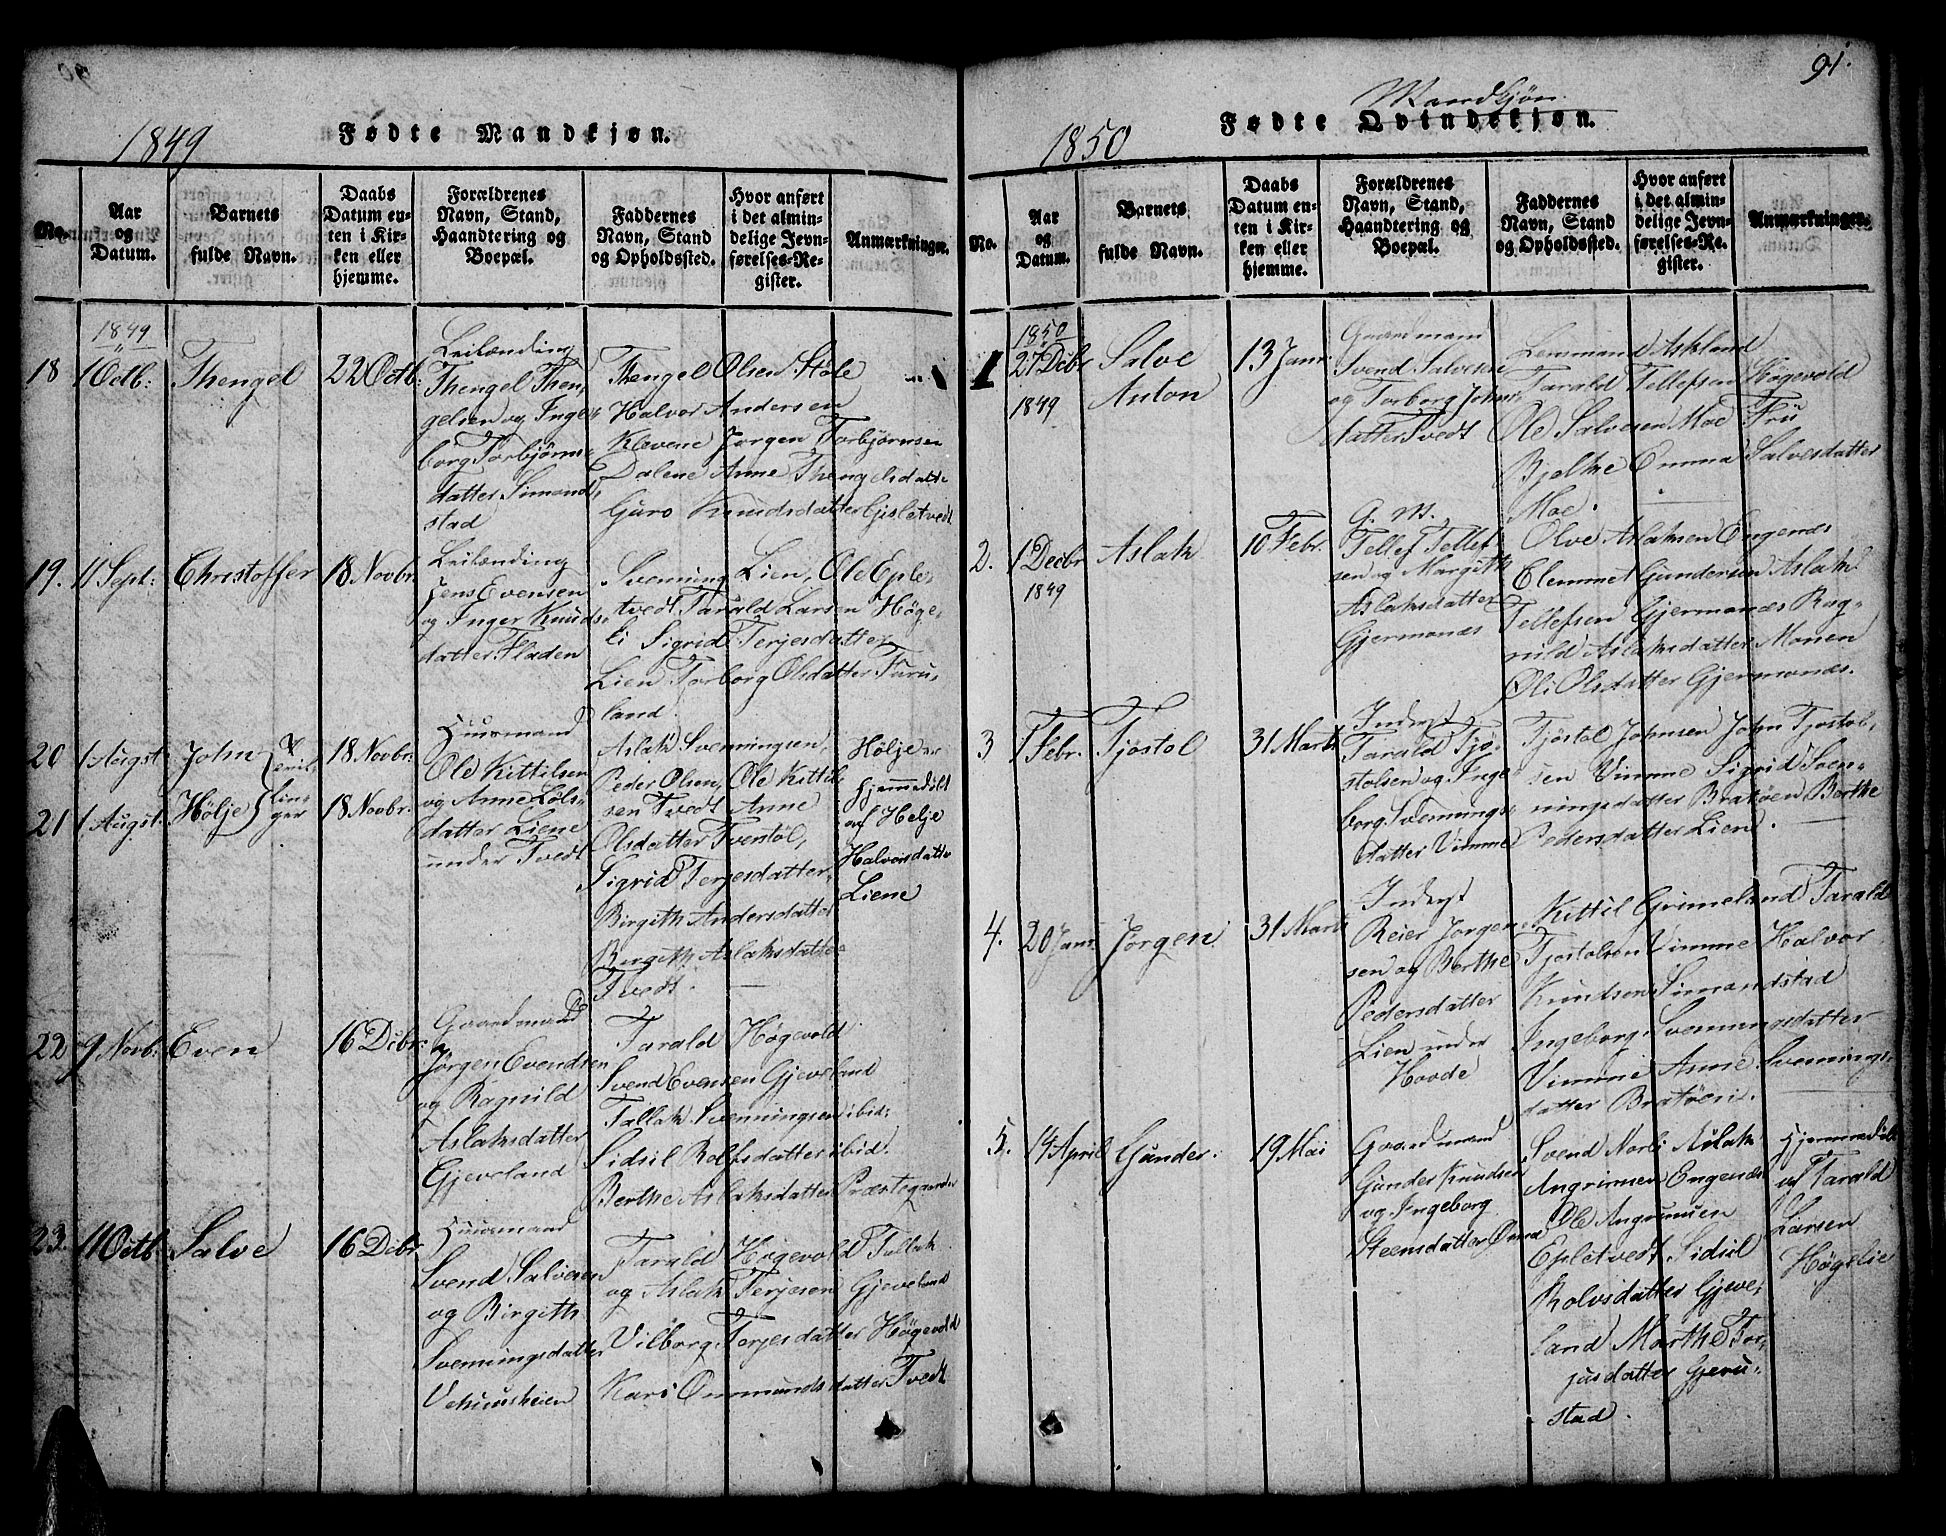 1849
Fødte Mandkjøn.
No.
Aar og Datum.
Barnets fulde Navn.
Daabs Datum enten i Kirken eller hjemme.
Forældrenes Navn, Stand, Haandtering og Boepæl.
Faddernes Navn, Stand og Opholdssted.
Hvor anført i det almindelige Jevnførelses-Register.
Anmærkninger.
1849
18
1 Octb:
Thengel
22 Octb:
Leilænding
Thengel Then,
gelsen og Inge,
borg Torbjørns,
datter Simond,
stad
Thengel Olsen Støle
Halvor Andersen
Klevene Jørgen Torbjørnsen
Dalene Anne Thengelsdatt:
Guro Knudsdatter Gisletvedt
19.
11 Sept:
Christoffer
18 Novbr.
Leilænding
Jens Evensen
og Inger Knuds,
datter Fladen
Svenning Lien, Ole Eple,
tvedt Tarald Larsen Høge,
li Sigrid Terjesdatter
Lien Torborg Olsdatter Furu,
land.
20
1 Augst
John
18 Novbr:
21
1 Augst:
Høljе
tvil,
lin,
ger
18 Novbr:
Huusmand
Ole Kittilsen
og Anne Lols,
datter Liene
under Tvedt
Aslak Svenningsen,
Peder Olsen, Ole Kittil,
sen Tvedt Anne
Olsdatter Tventøl,
Sigrid Terjesdatter,
Birgith Andersdatter
Birgith Aslaksdatter
Tvedt.
Hølje er
hjemmedøbt
af Helje
Halvorsdatter
Liene
22
9 Novb:
Even
16 Debr:
Gaardmand
Jørgen Evendsen
og Ragnild
Aslaksdatter
Gjeveland
Tarald Høgevold
Svend Evensen Gjeveland
Tallak Svenningsen ibid:
Sidsil Rolfsdatter ibid.
Berthe Aslaksdatter Præstegaarden
23.
11 Octb:
Salve
16 Debr.
Huusmand
Svend Salvesen
og Birgith
Svenningsdatter
Tarald Høgevold Tallak
og Aslak Terjesen Gjeveland
Vilborg Terjesdatter Høgevold
Kari Ommundsdatter Tvedt
91.
1850
Mandkjøn.
Fødte Qvindekjøn.
No.
Aar og Datum.
Barnets fulde Navn.
Daabs Datum enten i Kirken eller hjemme.
Forældrenes Navn, Stand, Haandtering og Boepæl.
Faddernes Navn, Stand og Opholdssted.
Hvor anført i det almindelige Jevnførelses-Register.
Anmærkninger.
1850
1
27 Debr
1849
Salve
Anton
13 Janr.
Gaardmand
Svend Salvesen
og Torborg Johns,
datter Tvedt
Lensmand Askland
Tarald Tellefsen Høgevold
Ole Salvesen Moe Frü
Bjelke Emma Salvesdatter
Moe.
2.
1 Decbr
1849
Aslak
10 Febr.
G. M.
Tellef Tellef,
sen og Margith
Aslaksdatter
Gjermonæs
Olve Aslaksen Engenæs
Clemmet Gundersen Aslak
Tellefsen Gjermonæs Rag,
nild Aslaksdatter Monen
Øli Olsdatter Gjermonæs.
3
1 Febr.
Tjøstol
31 Marts
Inderst
Tarald Tjø,
stolsen og Inge,
borg Svennings,
datter Vimme
Tjøstol Johnsen John Tjostol,
sen Vimme Sigrid Sven,
ningsdatter Bratøen Berthe
Pedersdatter Lien.
4.
20 Janr.
Jørgen
31 Marts
Inderst
Reier Jørgen,
sen og Berthe
Pedersdatter
Lien under
Hovde
Kittil Grimeland Tarald
Tjostolsen Vimme Halvor
Knudsen Simondstad
Ingeborg Svenningsdatter
Vimme Anne Svennings,
datter Bratøen.
5.
14 April
Gunder.
19 Mai
Gaardmand
Gunder Knudsen
og Ingeborg
Steensdatter
Svend Norli Aslak
Angrimsen Engenæs
Ole Angrimsen
Epletvedt Sidsil
Rolvsdatter Gjeve,
land Marthe Tor,
jusdatter Gjeru,
stad.
Hjemmedøbt
af Tarald
Larsen
Høgelie